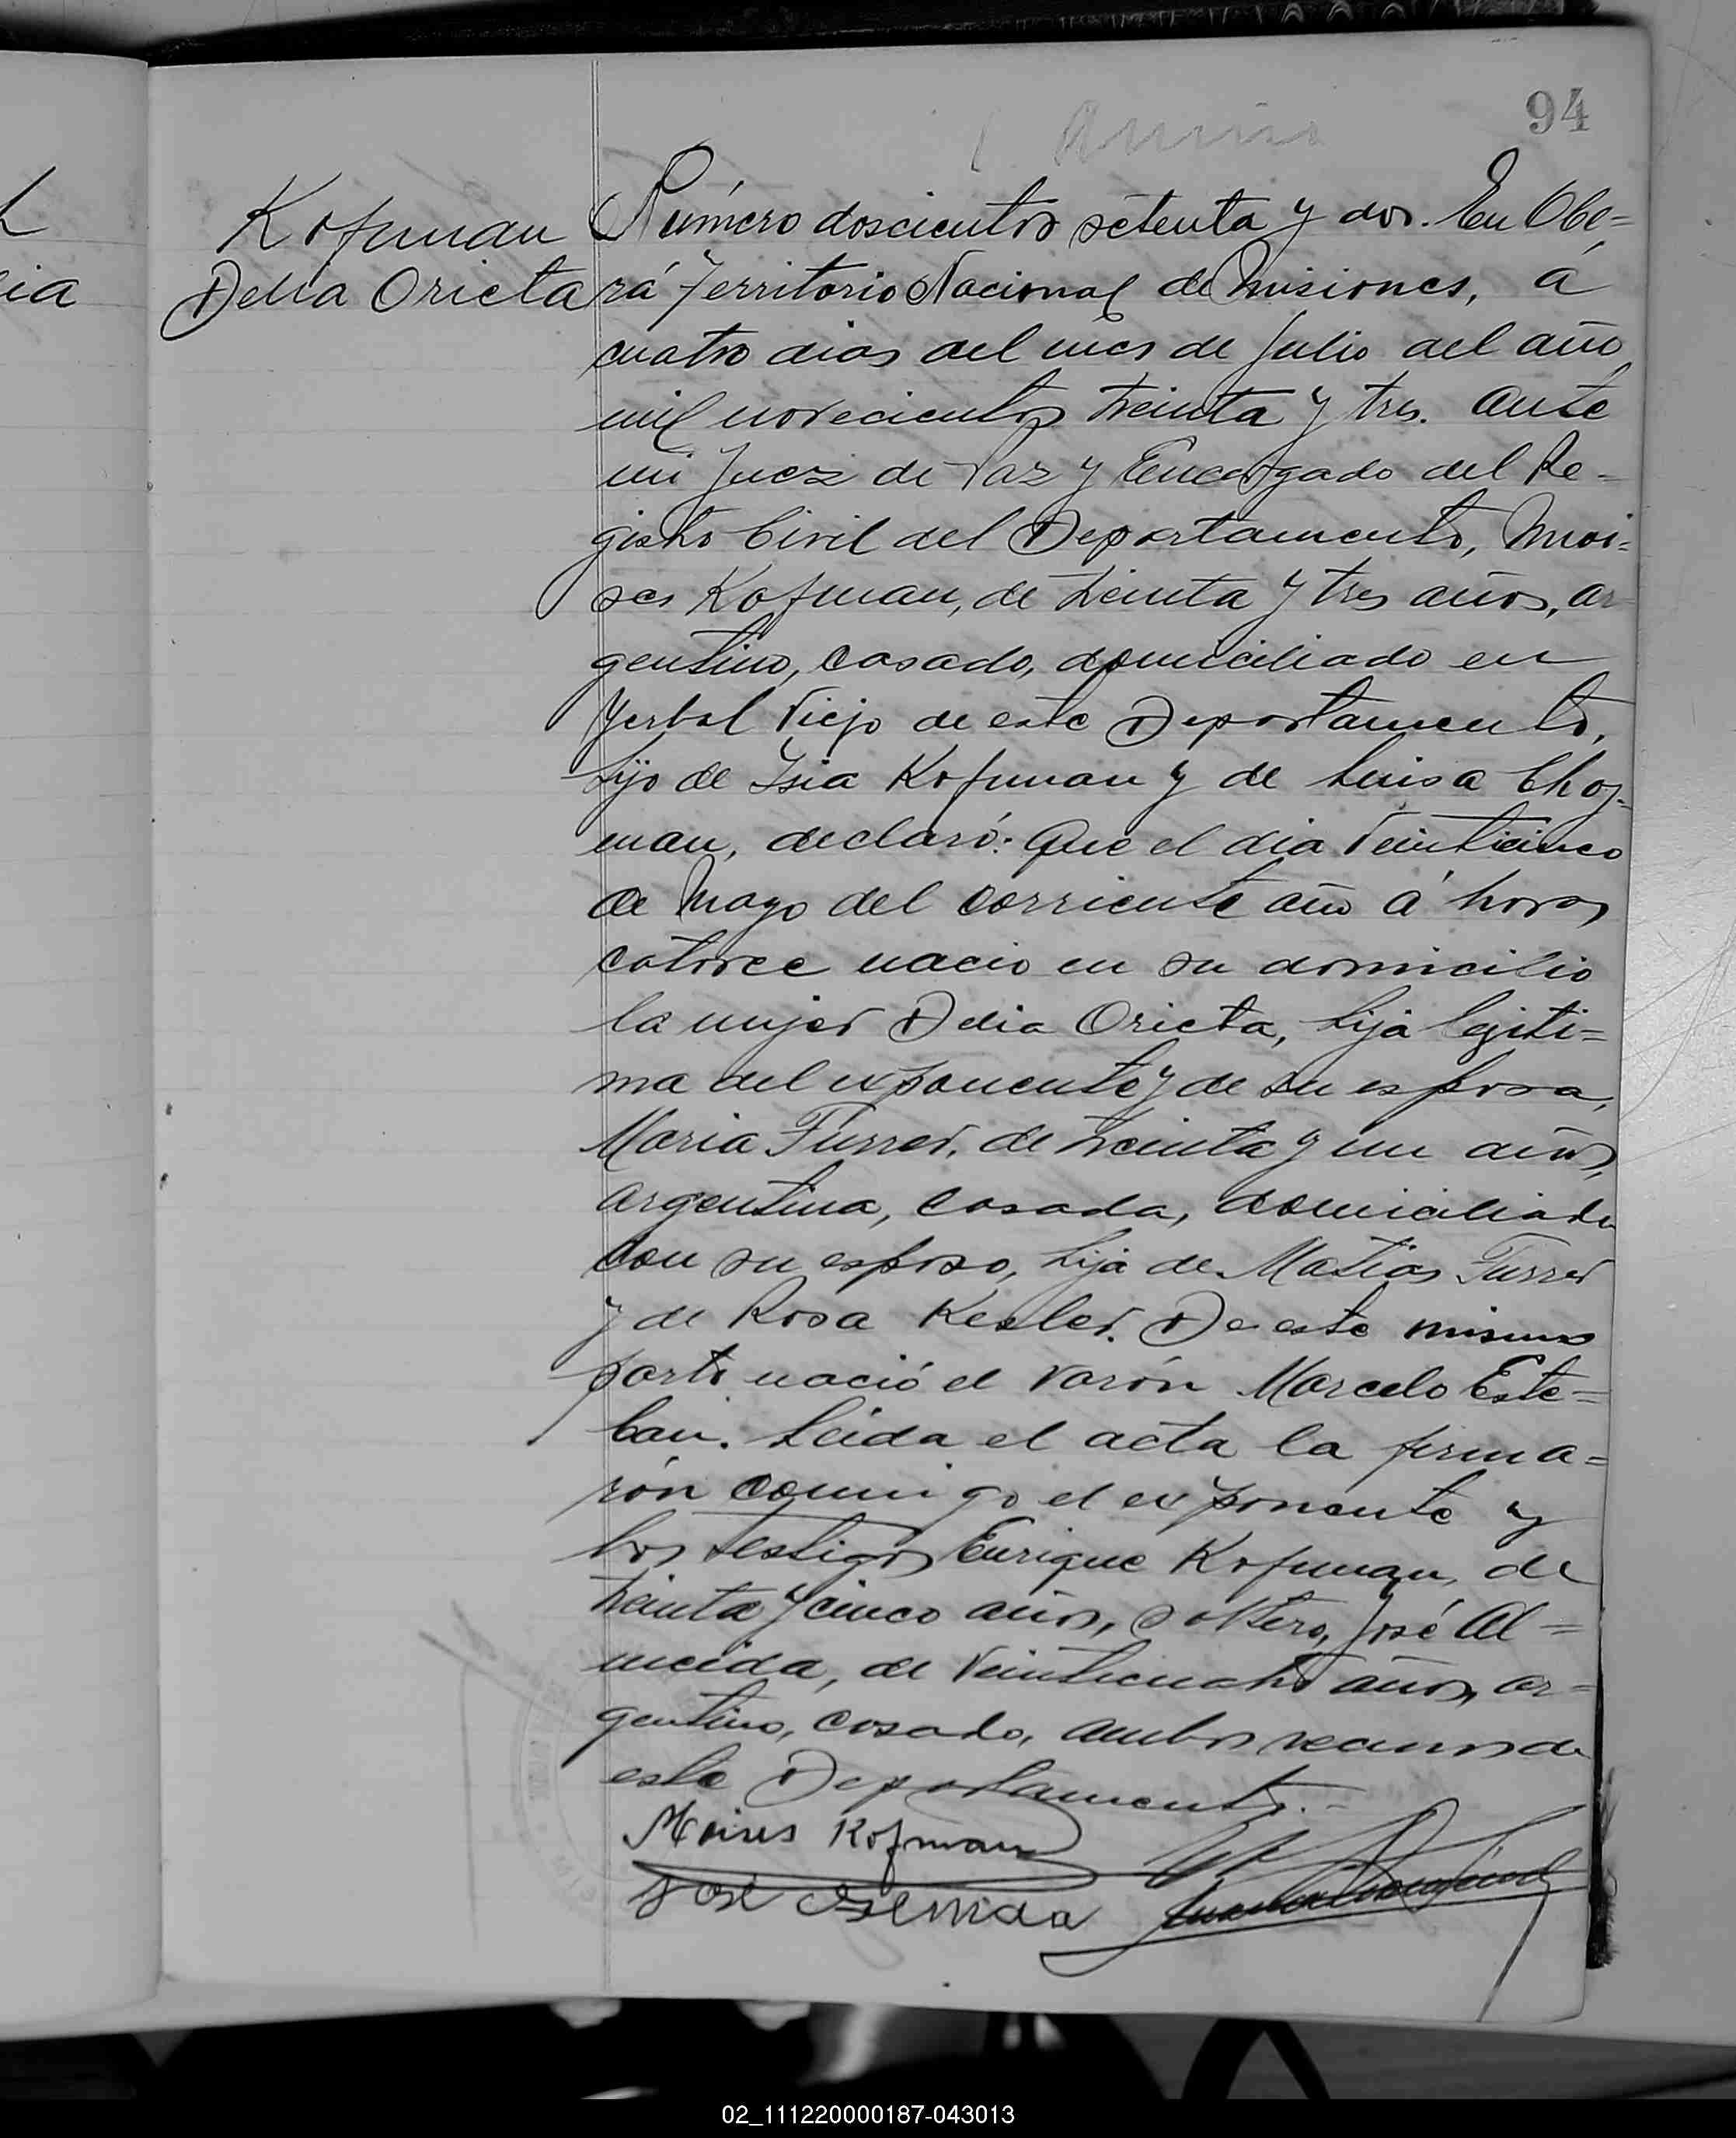 94
Kofman
Delia Orieta
Número doscientos setenta y dos. En Obe=
rá Territorio Nacional de Misiones, á
cuatro dias del mes de Julio del año
mil novecientos treinta y tres. ante
mi Juez de Paz y Encargado del Re-
gistro Civil del Departamento, Moi=
ses Kofman, de treinta y tres años, ar
gentino, casado, domiciliado en
Yerbal Viejo de este Departamento,
hijo de Isia Kofman y de Luisa
man, declaró: Que el dia veinticinco
de Mayo del corriente año á horas
catorce nacio en su domicilio
la mujer Delia Orieta, hija legiti=
ma del exponente y de su esposa,
Maria Furrer, de treinta y un años,
argentina, casada, domiciliada
con su esposo, hija de Matias Furrer
y de Rosa Kesler. De este mismo
parto nació el varón Marcelo Este=
ban. Leida el acta la firma=
rón comigo el exponente y
los testigos Enrique Kofman, de
treinta y cinco años, soltero, José Al=
meida, de veinticuatro años, ar=
gentino, casado, ambos vecinos de
este Departamento.-
Moises Kofman
José Almida
02_111220000187-043013